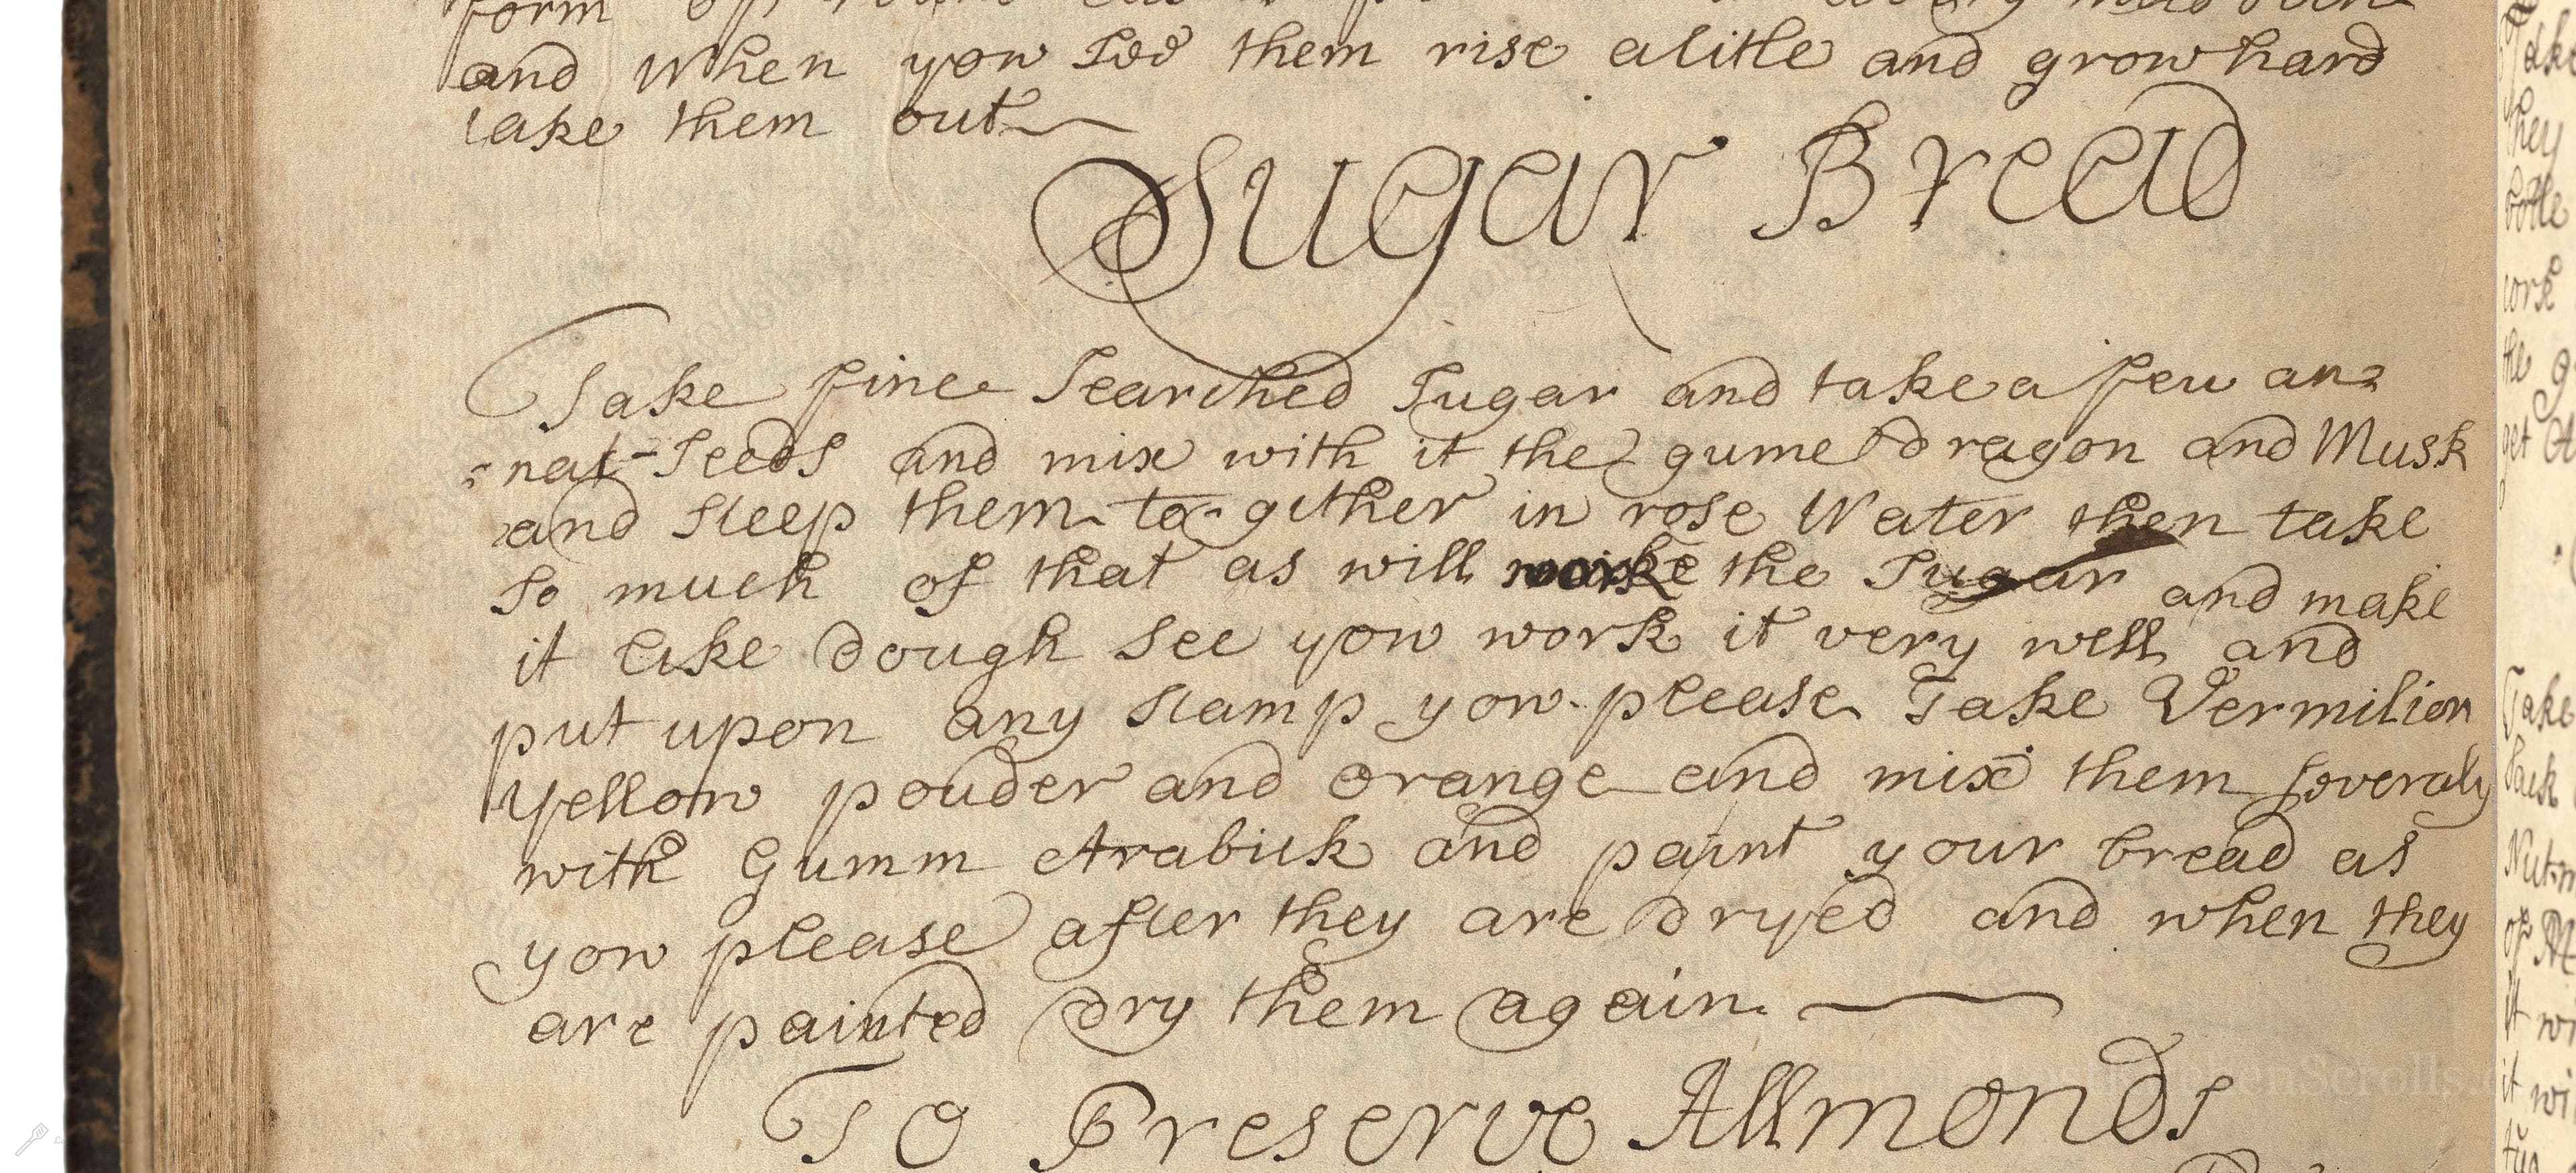 form
and When yow See them rise alitle and grow hard
take them out
Sugar Bread
Take fine Searched Sugar and take a few an=
=nat-Seeds and mix with it the gume dragon and Musk
and steep them to-gither in rose Water then take
so much of that as will worke the Sugar and make
it like dough see yow work it very well and
put upon any stamp yow please Take Vermilion
yellow pouder and orange and mix them severaly
with Gumm Arabick and paint your bread as
yow please after they are dryed and when they
are painted dry them again
To Preserve Allmonds